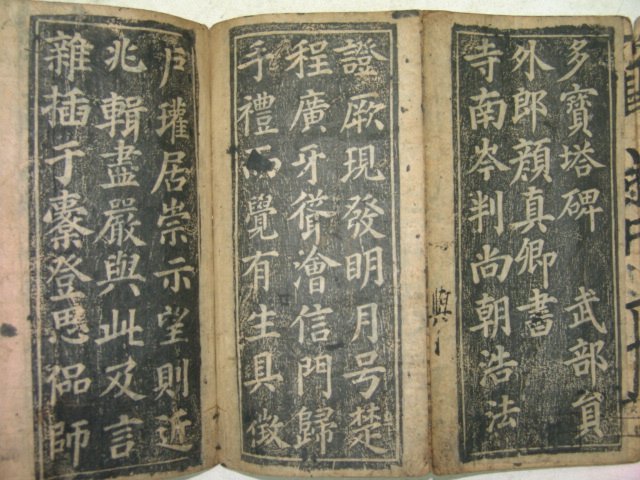 多寶塔碑 武部員
外郎顏真卿書
寺南岑判尚朝浩法
證厥現發明月号楚
程廣牙從澮信門歸
手禮為覺有生具徵
戶瓘居崇示望則近
兆輯盡嚴與此及言
雜插于橐登思褐師
與